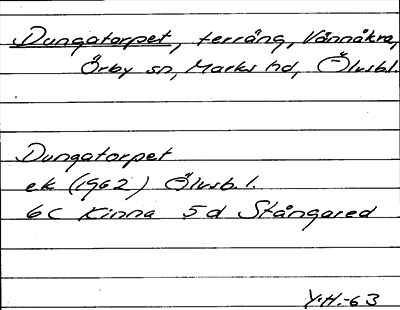 Dungatorpet, terräng, Vännåkra,
Örby sn, Marks hd, Älvsbl.
Dungatorpet
ek (1962) Älvsb. l.
6C Kinna 5d Stångared
Y.H.-63